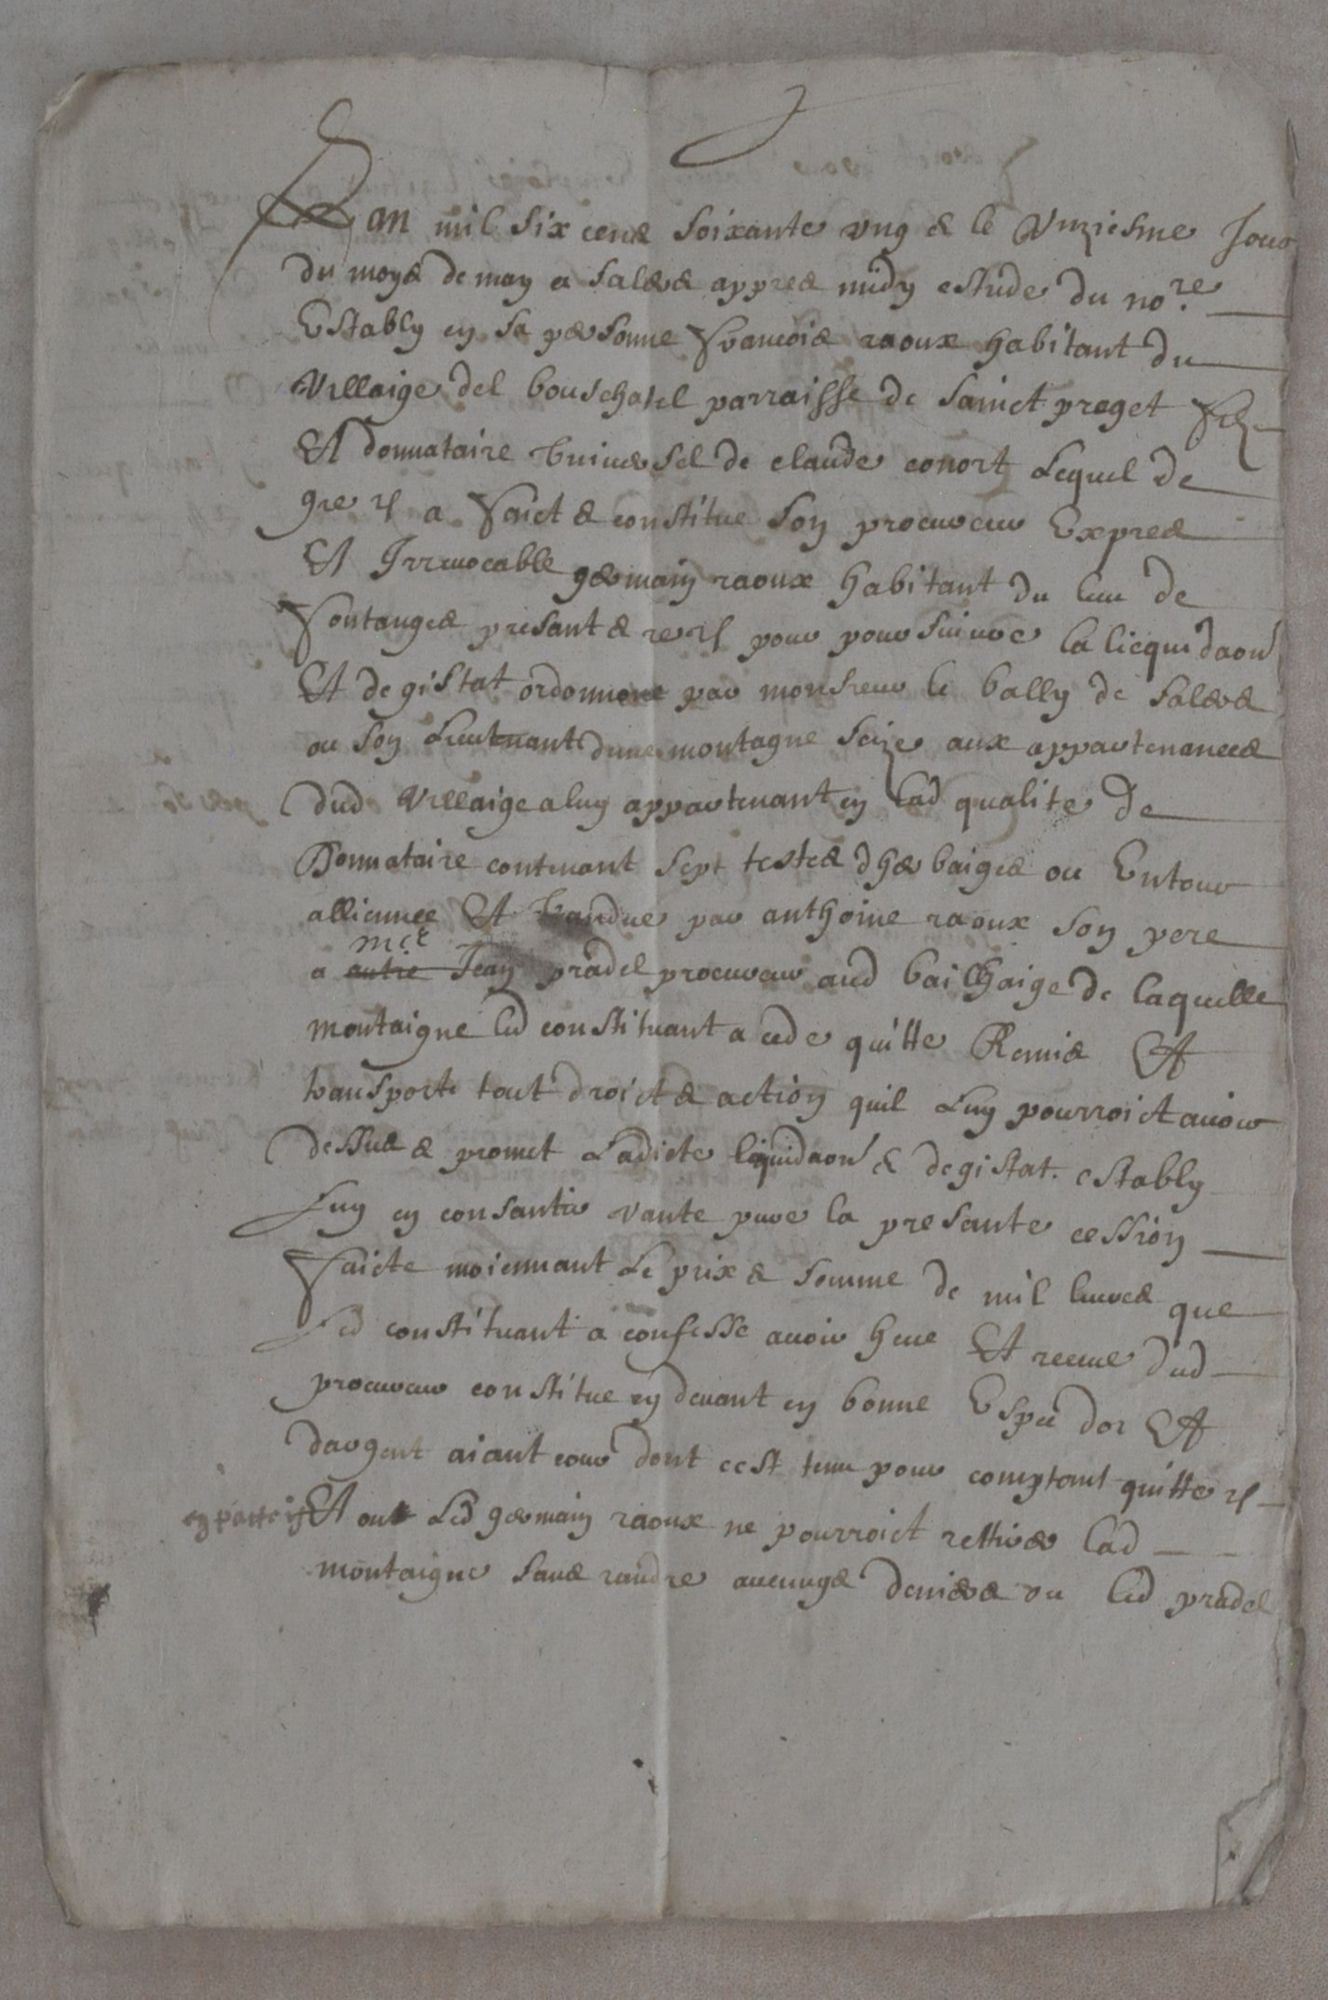 Lan mil six cens soixante ung & le Unziesme Jour
du moys de may a salers appres midy estude du no.re
Estably en sa personne francois raoux habitant du
Villaige del bouschatel parraisse de sainct proget filz
Et donnataire Universel de claude conort Lequel de
gre rl a faict & constitue son procureur Expres
Et Irrevocable germain raoux habitant du lieu de
fontanges present & pour poursuivre la licquidaon
Et degistat ordonnene par monsieur le bally de salers
ou son Lieutenant dune montagne seize aux appartenences
dud Villaige a luy appartenant en lad qualite de
Donnataire contenant sept testes dherbaiges ou Entour
alliennee Et Vandue par anthoine raoux son pere
a autre mre Jean pradel procureur aud bailhaige de laquelle
montaigne led constituant a cede quitte Remis Et
transporte tout droict & action quil Luy pourroict avoir
dessus & promet Ladicte liquidaon & degistat estably
Luy en consantir vante pure la presante cession
faicte moiennant Le prix & somme de mil livres que
Led constituant a confesse avoir heue Et receue dud
procureur constitue cy devant en bonne Espece dor Et
dargent aiant cour dont cest tenu pour comptant quitte rl
Et ou Led germain raoux ne pourroict rettirer lad
montaigne sans randre aucungs deniers ou led pradel